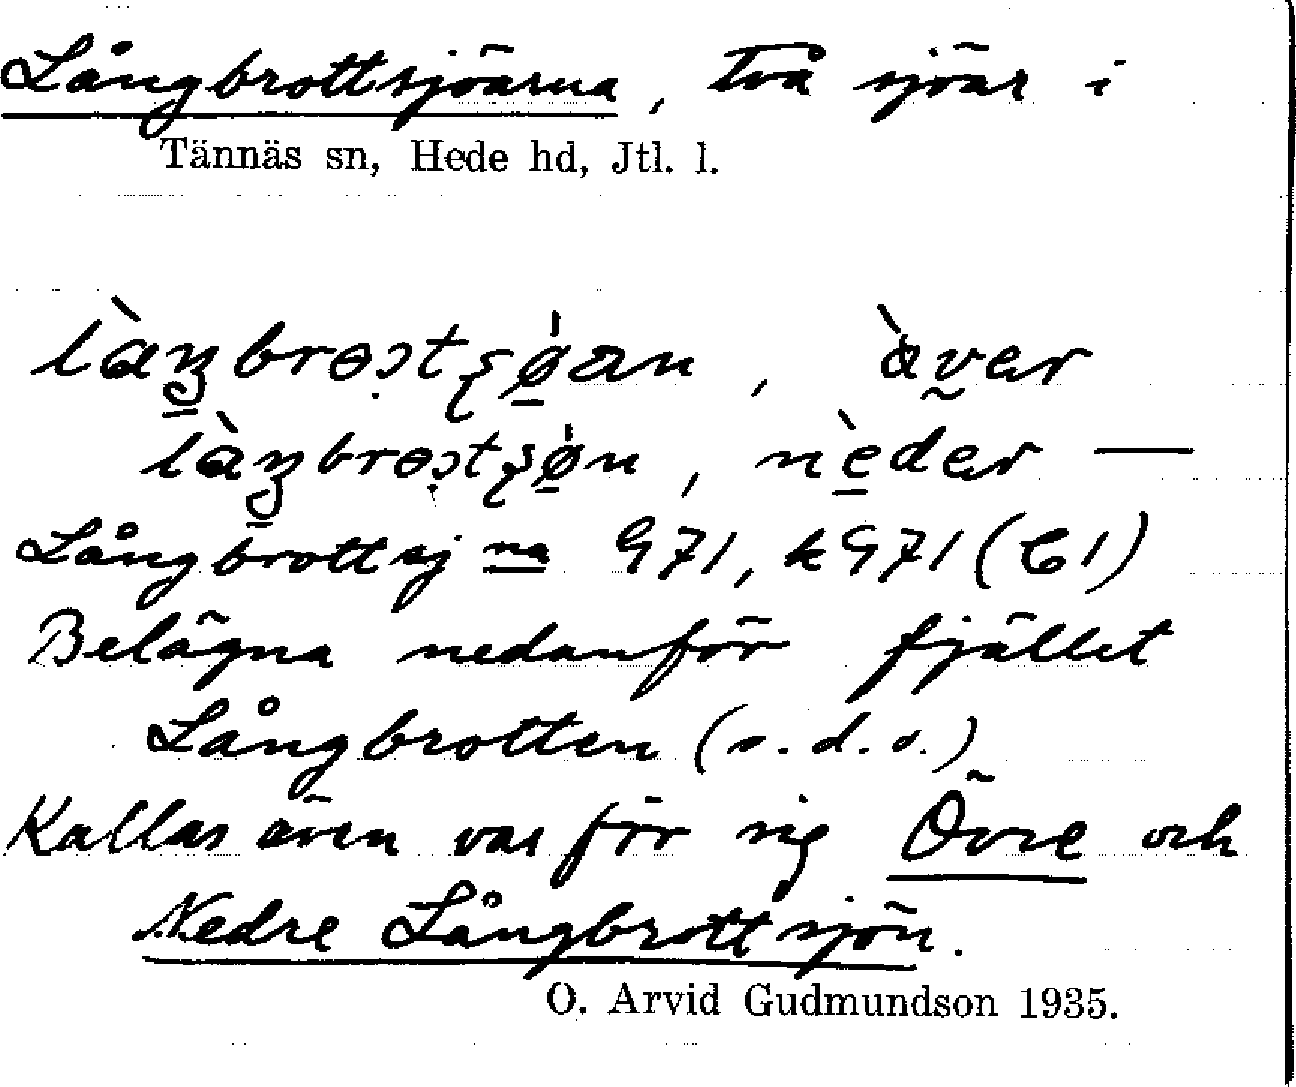 Långbrottsjöarna, två sjöar i
Tännäs sn, Hede hd, Jtl. l.
Långbrottsj na G 71, k G 71 (C 1)
Belägna nedanför fjället
Långbrotten (s. d. o.)
Kallas även var för sig Övre och
Nedre Långbrottsjön.
O. Arvid Gudmundson 1935.